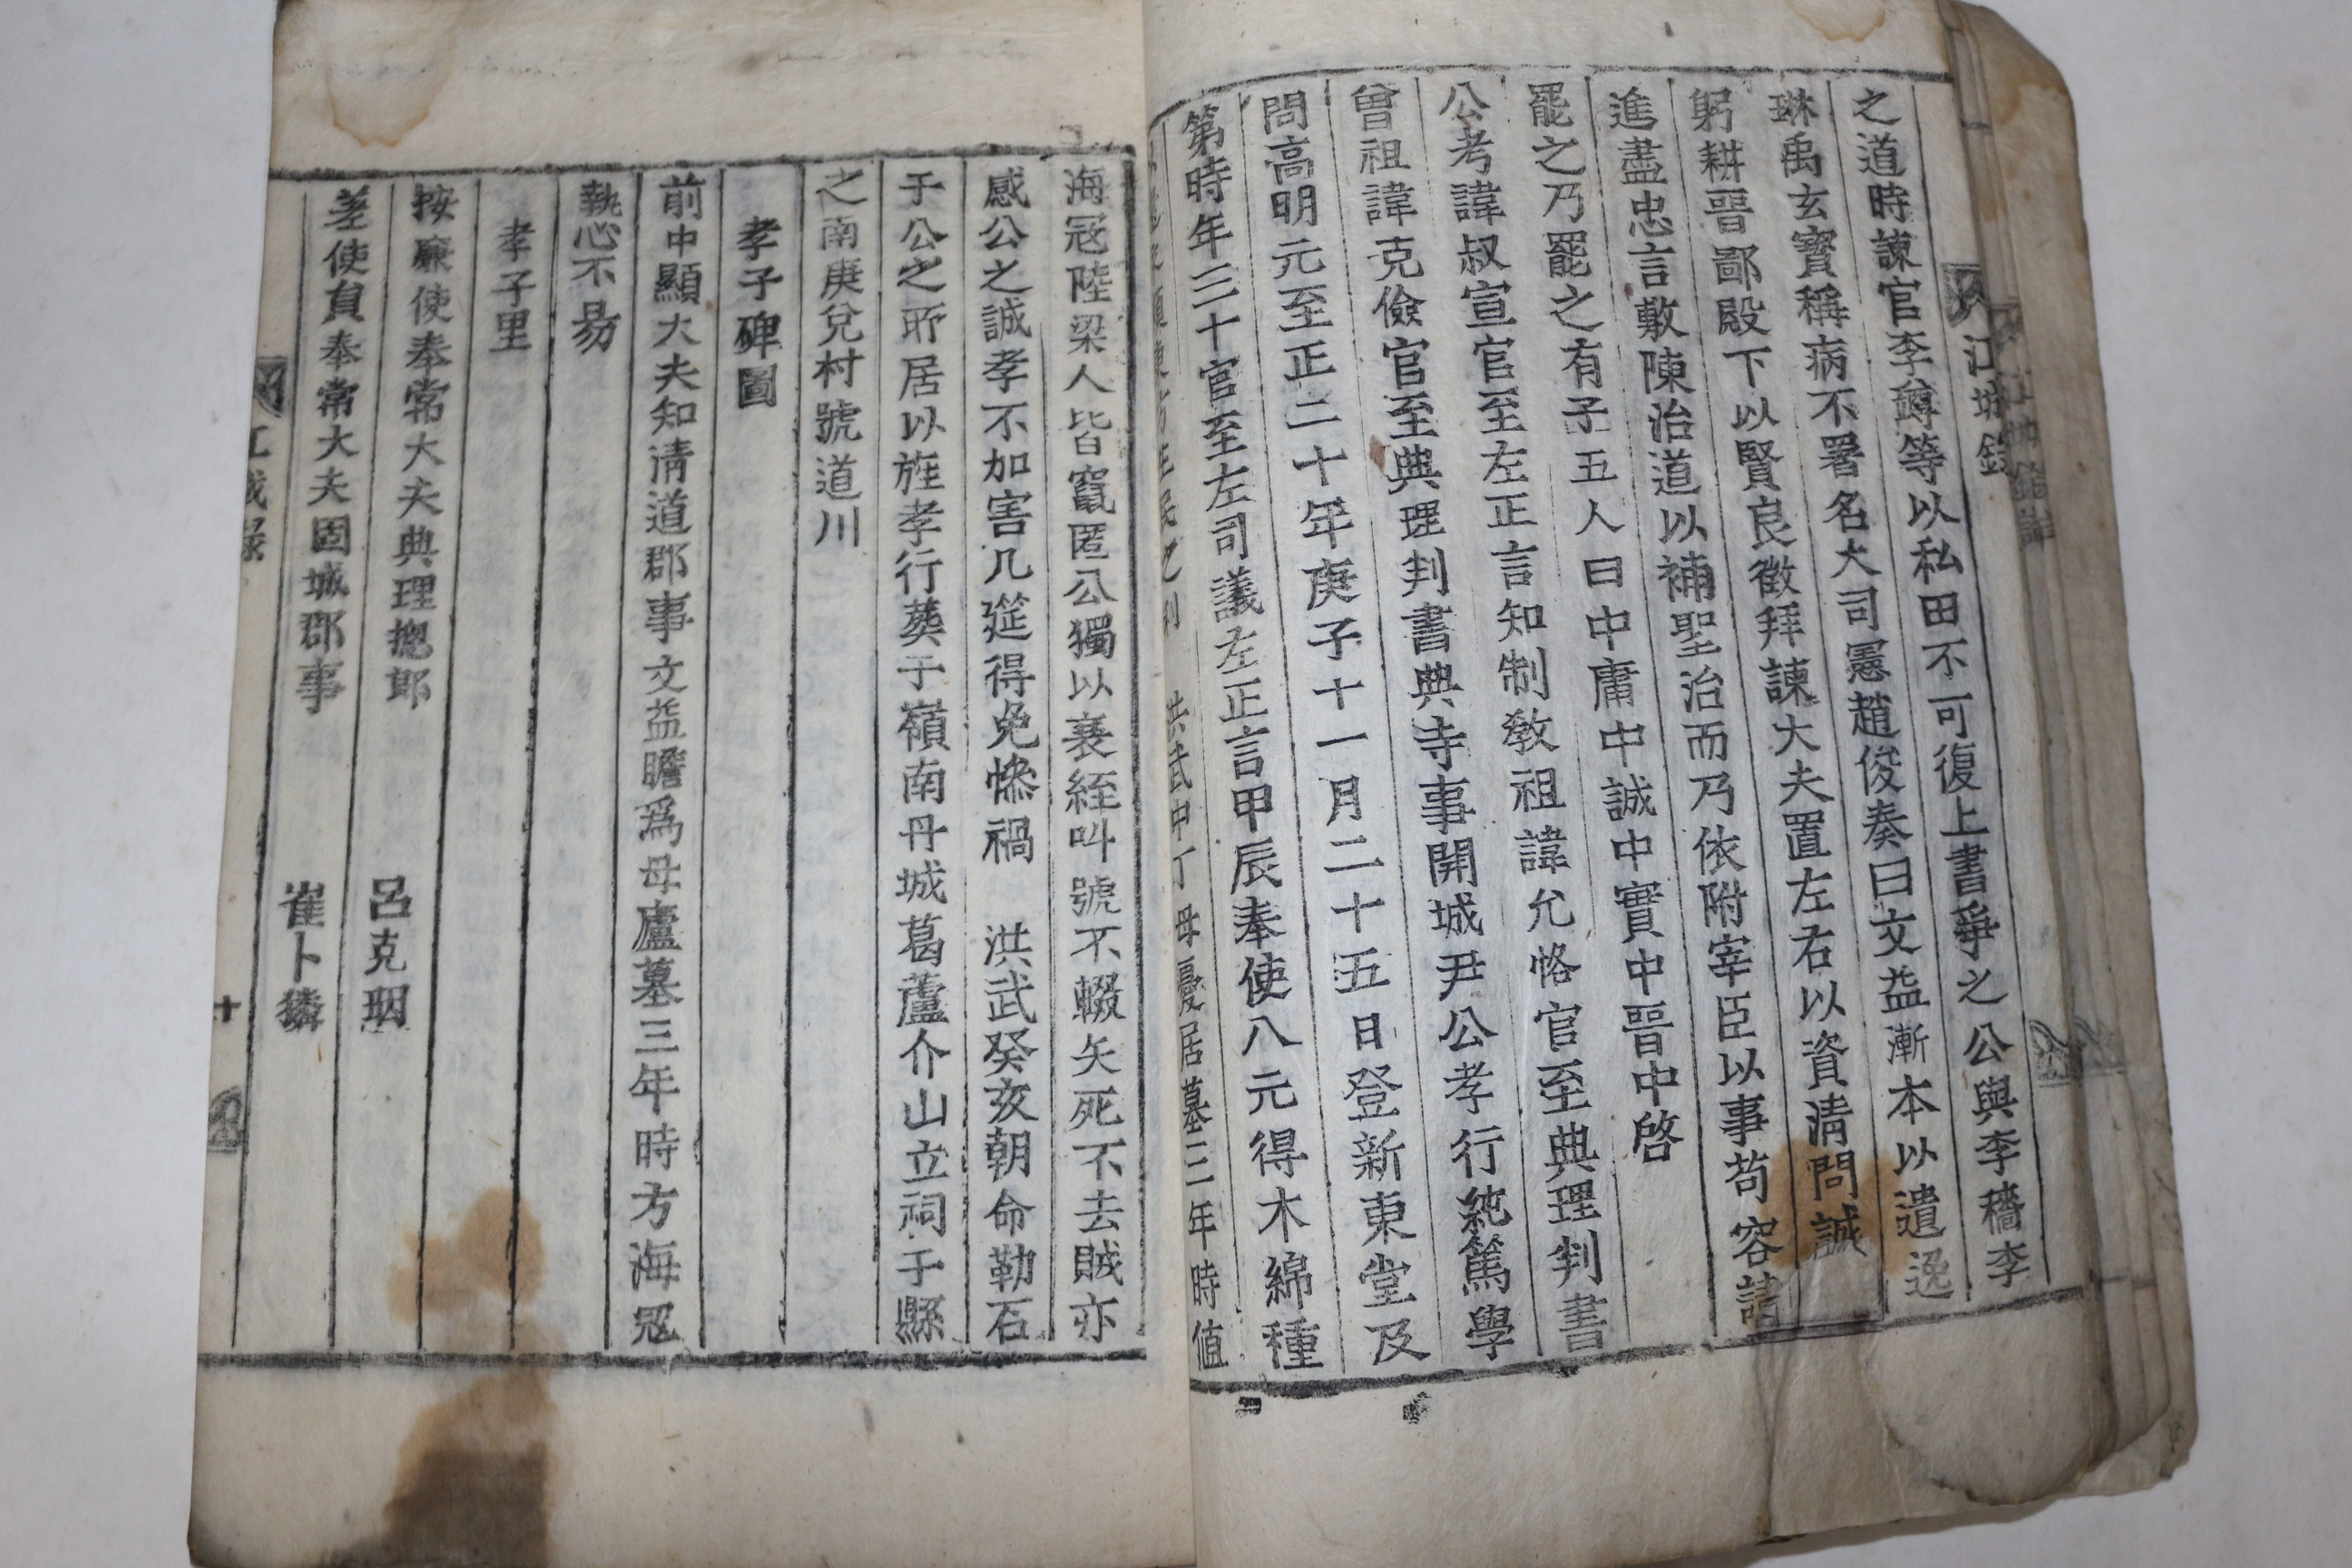 江城錄
之道時諫官李𡬶等以私田不可復上書爭之公與李穡李
琳禹玄寶稱病不署名大司憲趙俊奏曰文益漸本以遺逸
躬耕晋鄙殿下以賢良徵拜諫大夫置左右以資淸問誠
進盡忠言敷陳治道以補聖治而乃依附宰臣以事苟容請
罷之乃罷之有子五人曰中庸中誠中實中晋中啓
公考諱叔宣官至左正言知制教祖諱允恪官至典理判書
曾祖諱克儉官至典理判書典寺事開城尹公孝行純篤學
問高明元至正二十年庚子十一月二十五日登新東堂及
第時年三十官至左司議左正言甲辰奉使八元得木綿種
洪武中丁母憂居墓三年時值
海冦陸梁人皆竄匿公獨以衰絰叫號不輟矢死不去賊亦
感公之誠孝不加害几筵得免慘禍 洪武癸亥朝命勒石
于公之所居以旌孝行葬于嶺南丹城葛蘆介山立祠于縣
之南庚兌村號道川
孝子碑圖
前中顯大夫知淸道郡事文益瞻爲母廬墓三年時方海冦
執心不易
孝子里
按廉使奉常大夫典理摠郎 呂克珚
差使員奉常大夫固城郡事 崔卜獜
江城錄
十